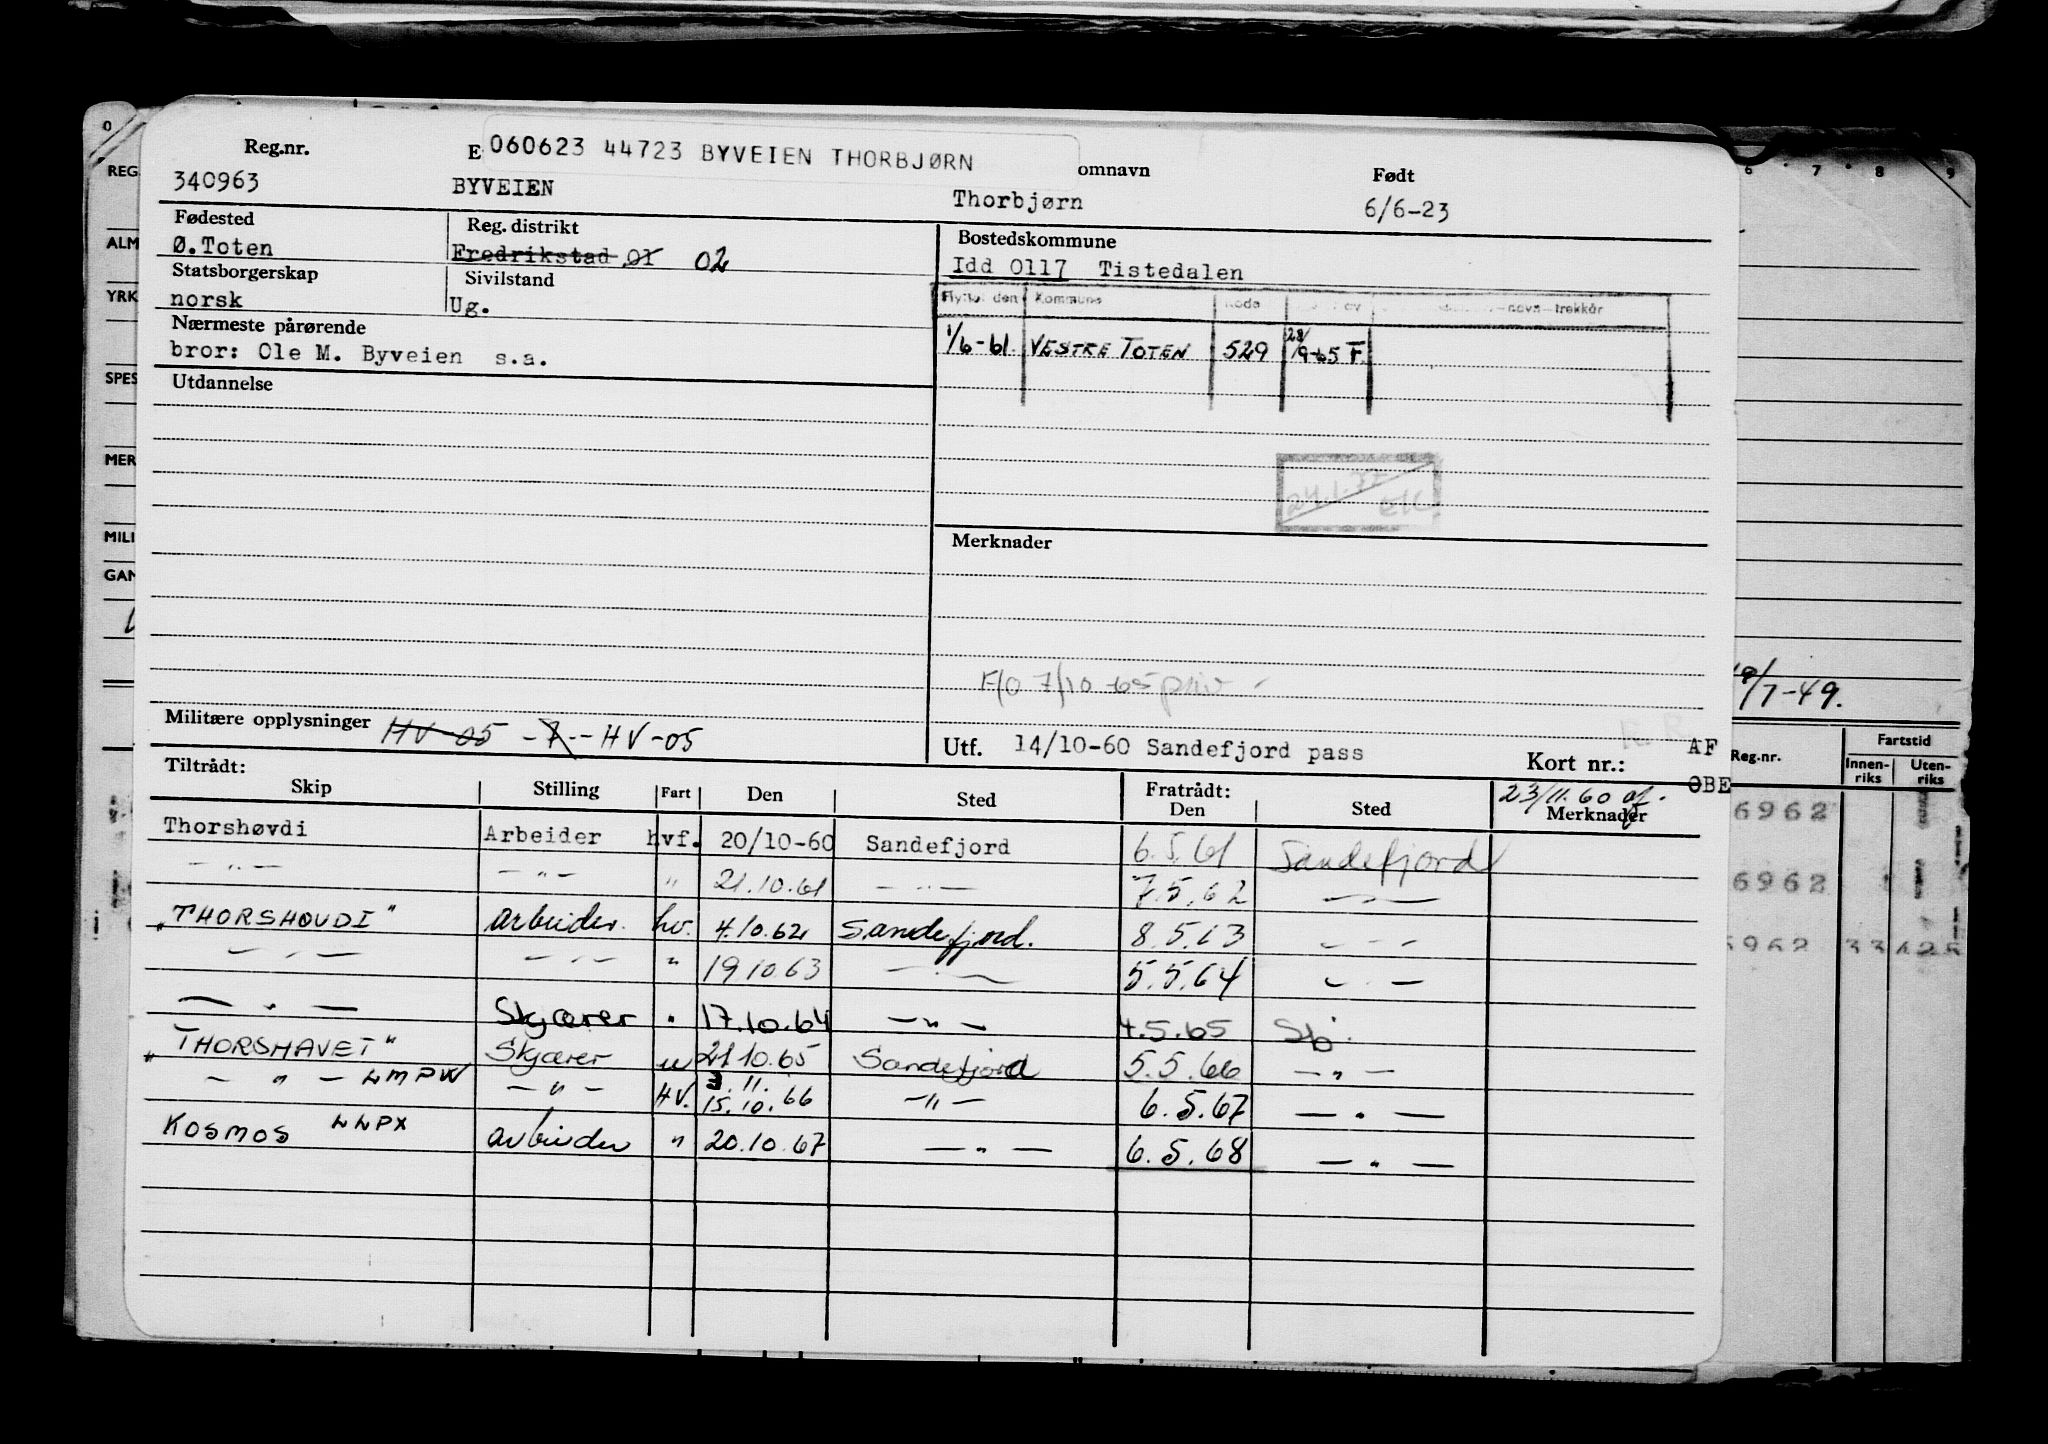 Reg.nr. E 060623 44723 BYVEIEN THORBJØRN omnavn Født
340963 BYVEIEN Thorbjørn 6/6-23
Fødested Reg. distrikt Bostedskommune
Ø.Toten Fredrikstad 01 02 Idd 0117 Tistedalen
Statsborgerskap Sivilstand
norsk Ug.
Flyttet den Kommune Kode
Nærmeste pårørende
bror: Ole M. Byveien s.a.
1/6-61 VESTRE TOTEN 529 28/9-65 F.
Utdannelse
Merknader
F/O 7/10-65 priv
Militære opplysninger HV-05 -7.- HV-05
Utf. 14/10-60 Sandefjord pass Kort nr.:
AF
OBE
Tiltrådt: Fratrådt: 23/11.60
Skip Stilling Fart Den Sted Den Sted Merknader
Thorshøvdi Arbeider hvf. 20/10-60 Sandefjord 6.5.61 Sandefjord
— " — — " — " 21.10.61 — " — 7.5.62 — " —
"THORSHOVDI" arbeider. hv. 4.10.62 Sandefjord. 8.5.63 — " —
— " — — " — " 19.10.63 — " — 5.5.64 — " —
— " — Skjærer " 17.10.64 — " — 4.5.65 Sfj.
"THORSHAVET" Skjærer " 21.10.65 Sandefjord 5.5.66 — " —
— " — LMPW — " — HV. 15.10.66 — " — 6.5.67 — " —
KOSMOS LLPX arbeider " 20.10.67 — " — 6.5.68 — " —
REG
ALM
YRK
SPES
MER
MILI
GAN
0
6 7 8 9
19/7-49.
Reg.nr. Fartstid
Innenriks Utenriks
6962
6962
6962 33 425